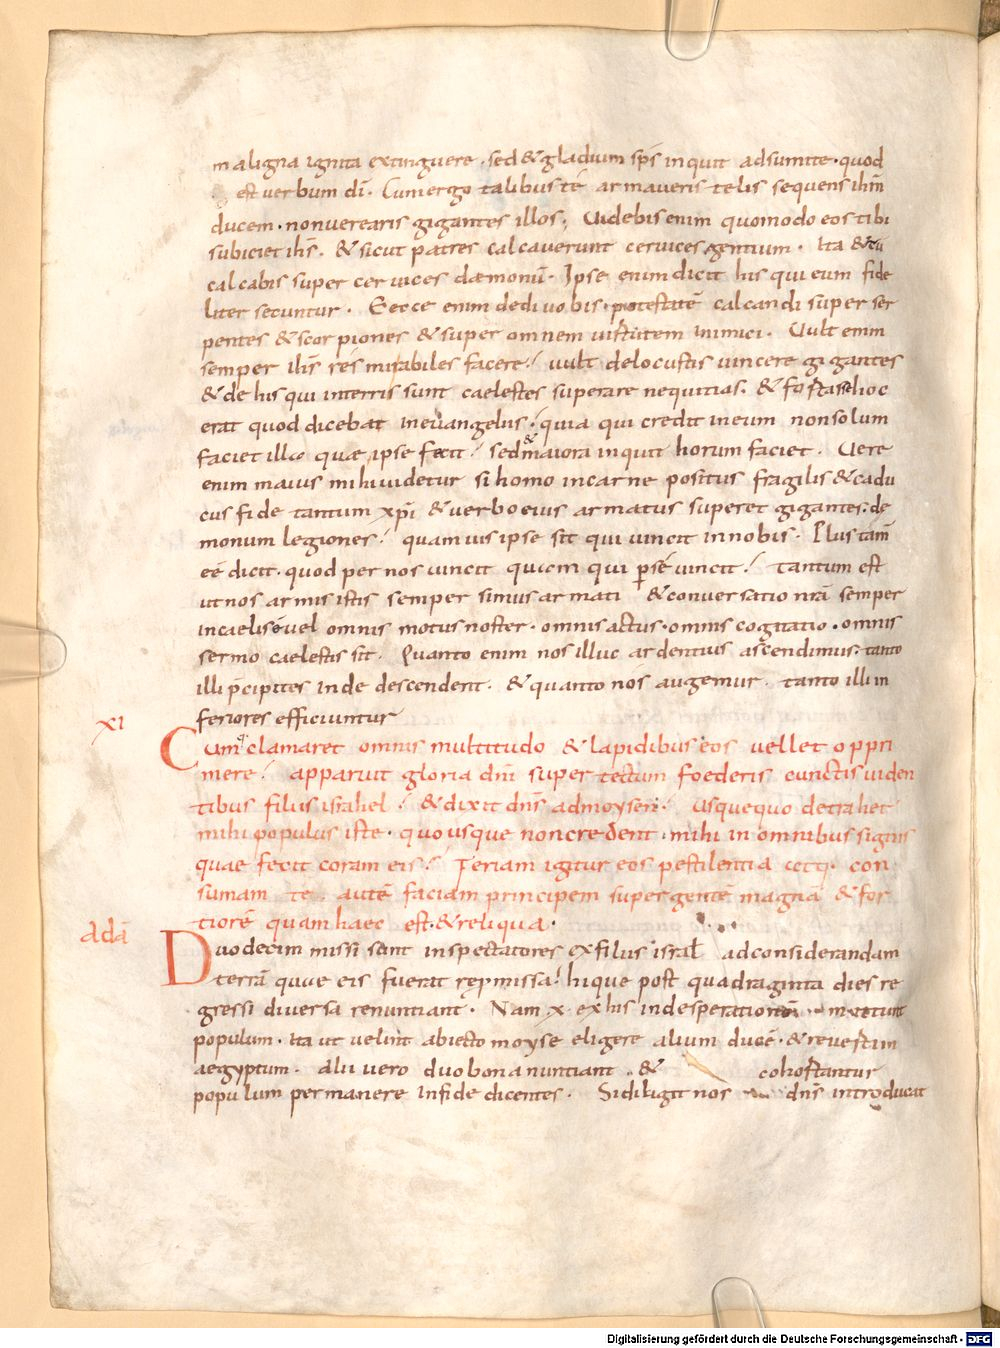 maligna ignita extinguere · sed & gladium sp̄s inquit adsumite · quod
est verbum dī · Cum ergo talibus te armaveris telis sequens ihm̄
ducem · non verearis gigantes illos; Videbis enim quomodo eos tibi
subiciet ihs̄ · & sicut patres calcaverunt cervices gentium · Ita & tu
calcabis super cervices dæmonū · Ipse enim dicit his qui eum fide
liter secuntur · Eecce enim dedi vobis · potestatē calcandi super ser
pentes & scorpiones & super omnem virtutem inimici · Vult enim
semper ihs̄ res mirabiles facere · vult de locustis vincere gigantes
& de his qui in terris sunt caelestes superare nequitias · & fortasse hoc
erat quod dicebat in euangelus · quia qui credit in eum non solum
faciet illa quae ipse fecit · sed & maiora inquit horum faciet · Vere
enim maius mihi videtur si homo in carne positus fragilis & cadu
cus fide tantum xp̄i & verbo eius armatus superet gigantes · de
monum legiones · quamvis ipse sit qui vincit in nobis · Plus tam̄
eē dicit · quod per nos vincit quam qui p se vincit · Tantum est
ut nos armis istis semper simus armati & conversatio nr̄a semper
in caelis & vel omnis motus noster · omnis actus · omnis cogitatio · omnis
sermo caelestis sit · Quanto enim nos illuc ardentius ascendimus · tanto
illi p̄cipites inde descendent · & quanto nos augemur · tanto illi in
feriores efficiuntur
XI
Cumq clamaret omnis multitudo & lapidibus eos vellet oppri
mere · apparuit gloria dn̄i super tectum foederis cunctis viden
tibus filiis israhel · & dixit dn̄s ad moysen · Usquequo detrahet
mihi populus iste · quousque non credent · mihi in omnibus signis
quae feci coram eis · Feriam igitur eos pestilentia atq · con
sumam te · autē faciam principem super gentē magnā & for
tiorē quam haec est · & reliqua ·
adā
Duodecim missi sunt inspectatores ex filiis israł ad considerandam
terrā quae eis fuerat repmissa · hique post quadraginta dies re
gressi diversa renuntiant · Nam x ex his in desperationem mittunt
populum · ita ut velint abiecto moyse eligere alium ducē · & reverti in
aegyptum · alii vero duo bona nuntiant · & cohortantur
populum permanere in fide dicentes · Si diligit nos dn̄s introducat
Digitalisierung gefördert durch die Deutsche Forschungsgemeinschaft - DFG